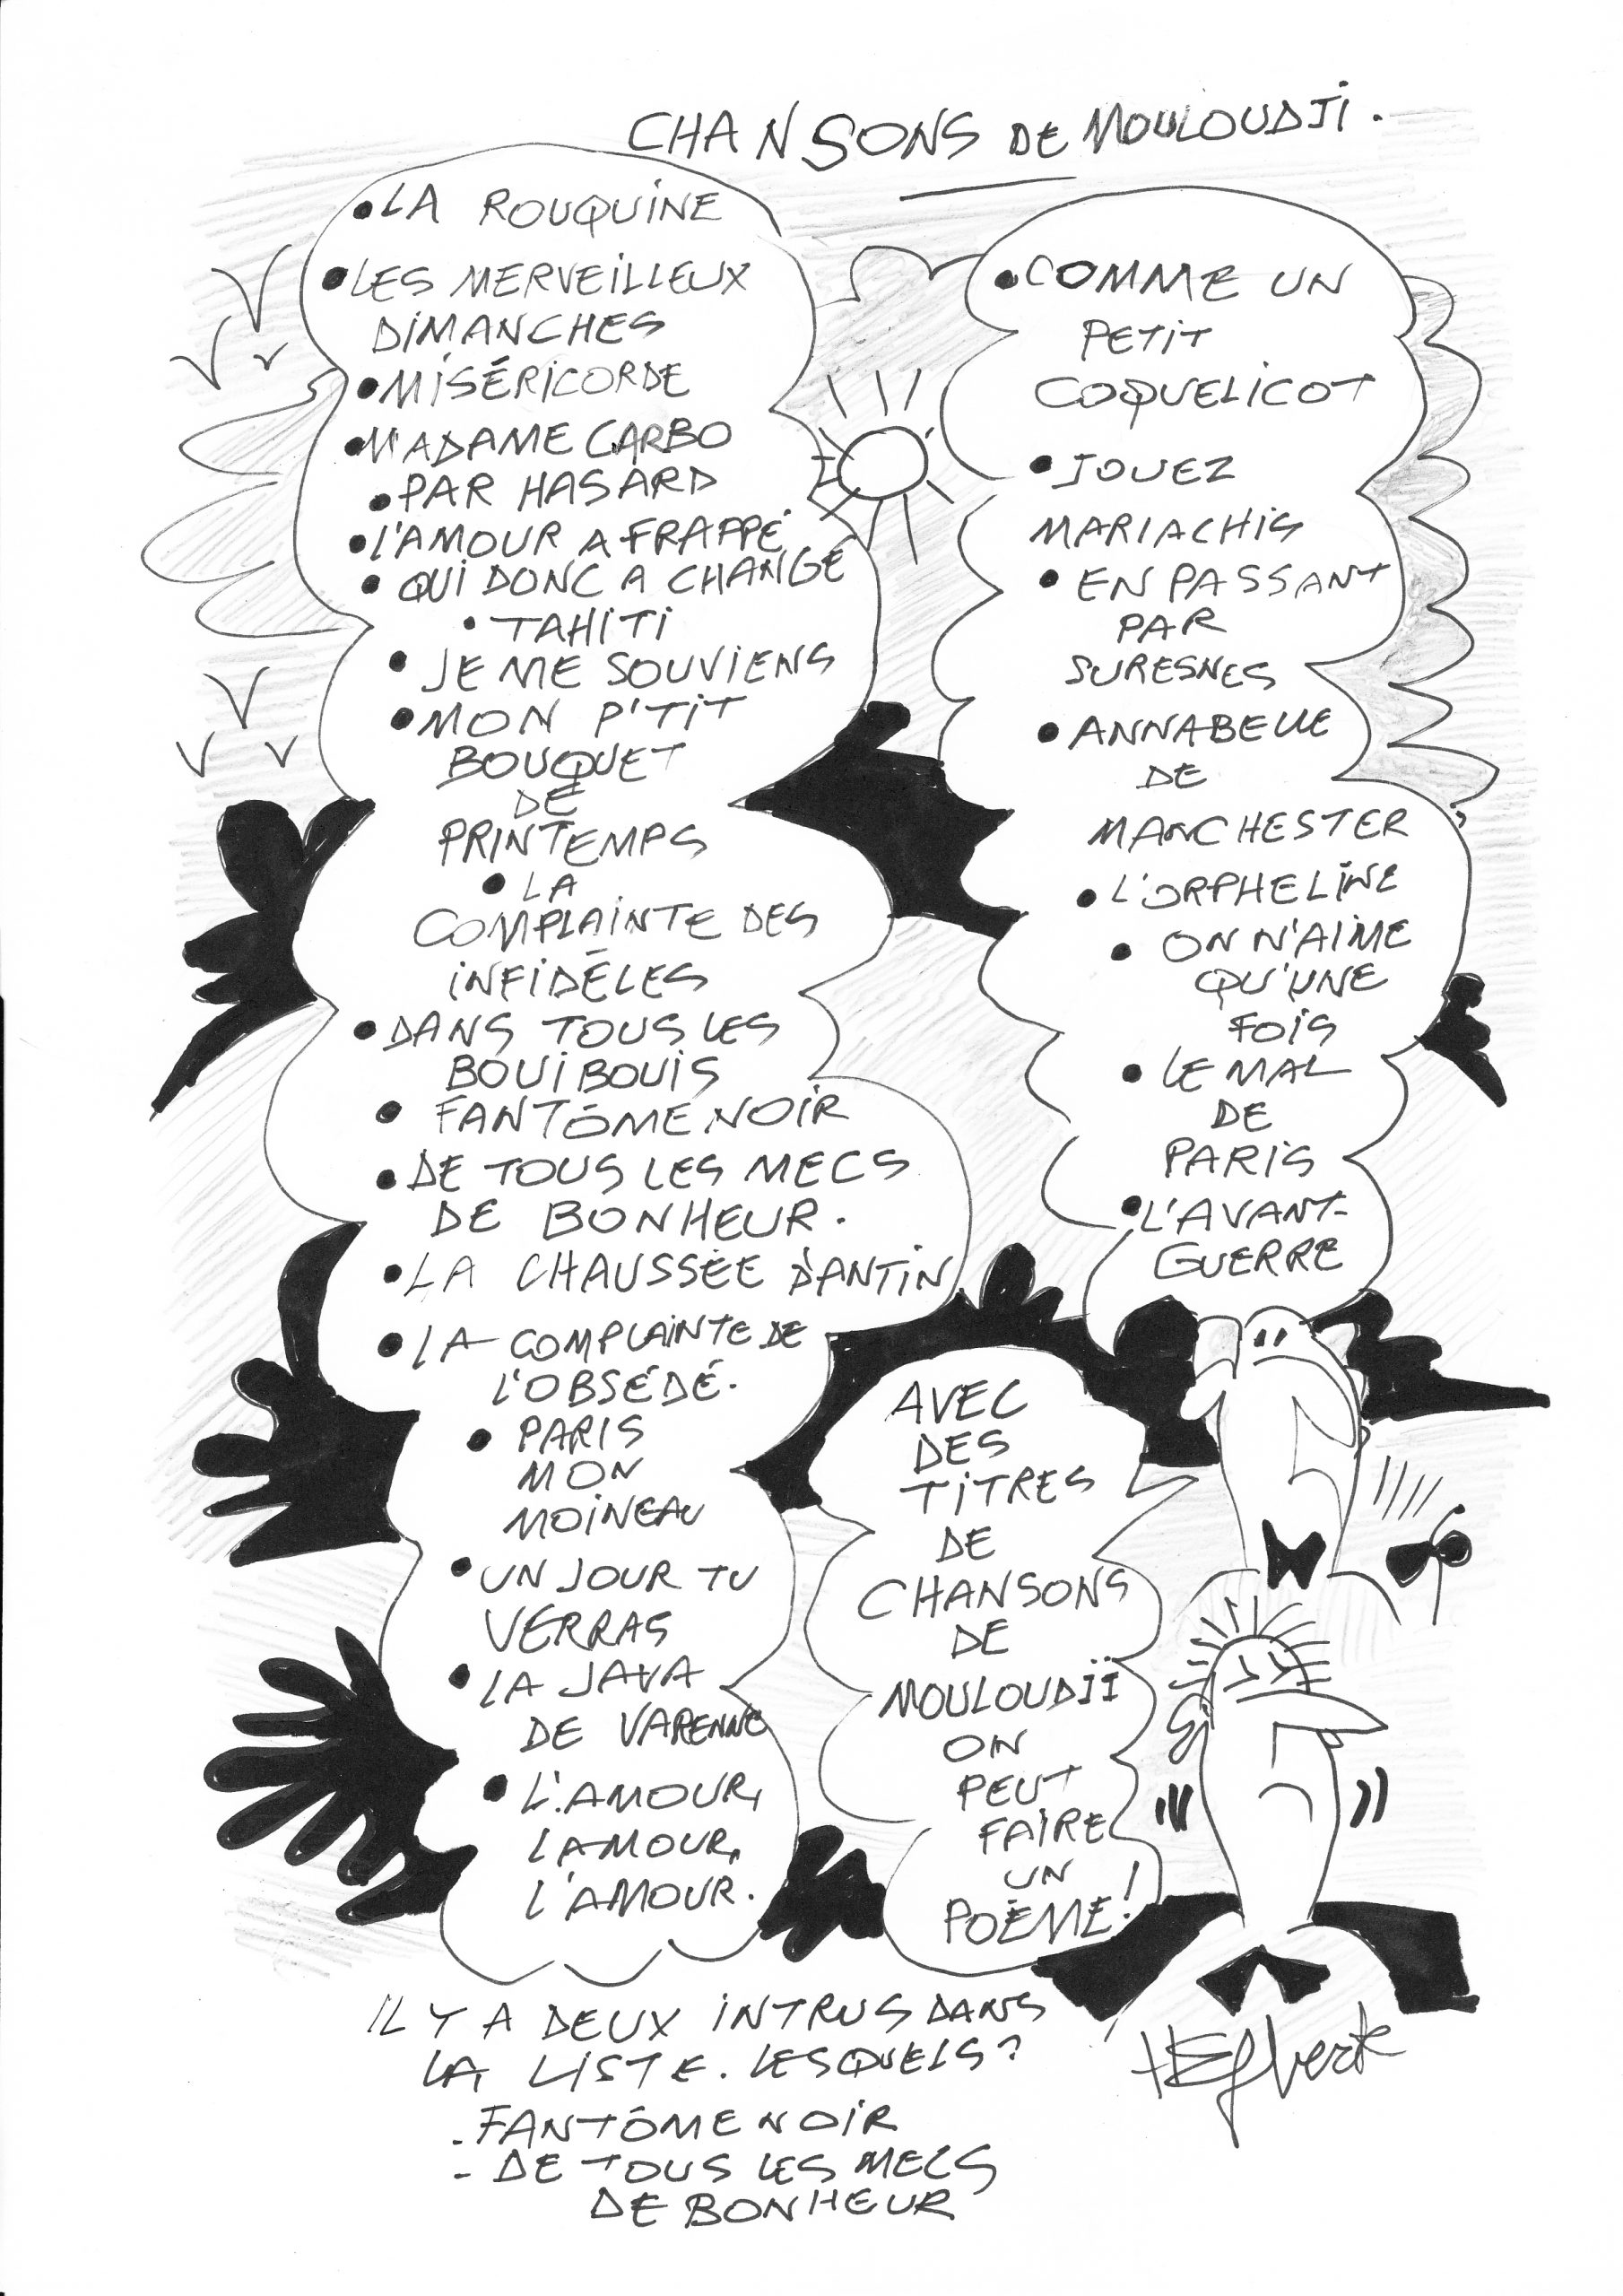 CHANSONS DE MOULOUDJI.
• LA ROUQUINE
• LES MERVEILLEUX
DIMANCHES
• MISÉRICORDE
• MADAME CARBO
• PAR HASARD
• L'AMOUR A FRAPPÉ
• QUI DONC A CHANGÉ
• TAHITI
• JE ME SOUVIENS
• MON P'TIT
BOUQUET
DE
PRINTEMPS
• LA
COMPLAINTE DES
INFIDÈLES
• DANS TOUS LES
BOUIBOUIS
• FANTÔME NOIR
• DE TOUS LES MECS
DE BONHEUR.
• LA CHAUSSÉE D'ANTIN
• LA COMPLAINTE DE
L'OBSÉDÉ.
• PARIS
MON
MOINEAU
• UN JOUR TU
VERRAS
• LA JAVA
DE VARENNE
• L'AMOUR,
LAMOUR,
L'AMOUR.
• COMME UN
PETIT
COQUELICOT
• JOUEZ
MARIACHIS
• EN PASSANT
PAR
SURESNES
• ANNABELLE
DE
MANCHESTER
• L'ORPHELINE
• ON N'AIME
QU'UNE
FOIS
• LE MAL
DE
PARIS
• L'AVANT-
GUERRE
AVEC
DES
TITRES
DE
CHANSONS
DE
MOULOUDJI
ON
PEUT
FAIRE
UN
POÈME!
IL Y A DEUX INTRUS DANS
LA LISTE. LESQUELS?
- FANTÔME NOIR
- DE TOUS LES MECS
DE BONHEUR